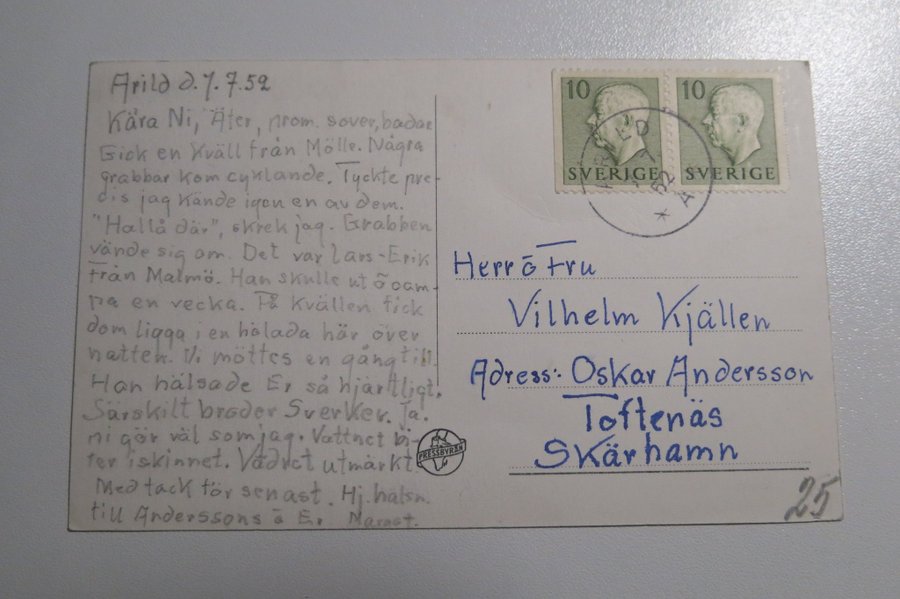 Arild d. 7.7.52
Kära Ni, Äter, prom. sover, badar
Gick en kväll från Mölle. Några
grabbar kom cyklande. Tyckte pre-
cis jag kände igen en av dem.
"Hallå där", skrek jag. Grabben
vände sig om. Det var Lars-Erik
från Malmö. Han skulle ut ō cam-
pa en vecka. På kvällen fick
dom ligga i en hölada här över
natten. Vi möttes en gång till.
Han hälsade Er så hjärtligt.
Särskilt broder Sverker. Ja.
ni gör väl som jag. Vattnet bi-
ter i skinnet. Vädret utmärkt
Med tack för senast. Hj. hälsn.
till Anderssons ō Er.
10
SVERIGE
10
SVERIGE
7 7
52
Herr ō Fru
Vilhelm Kjällen
Adress: Oskar Andersson
Toftenäs
Skärhamn
PRESSBYRÅN
25